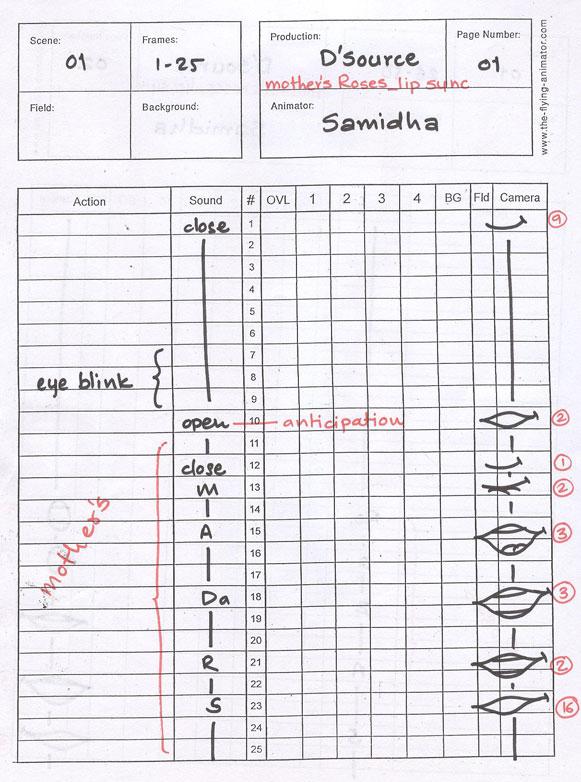 Scene: 01
Frames: 1-25
Production: D'source
mother's Roses_lip sync
Page Number: 01
Field:
Background:
Animator: Samidha
www.the-flying-animator.com
Action Sound # OVL 1 2 3 4 BG Fld Camera
close 1 9
2
3
4
5
6
7
eye blink 8
9
open 10 anticipation 2
11
close 12 1
m 13 2
14
A 15 3
16
17
mother's
Da 18 3
19
20
R 21 2
22
S 23 16
24
25